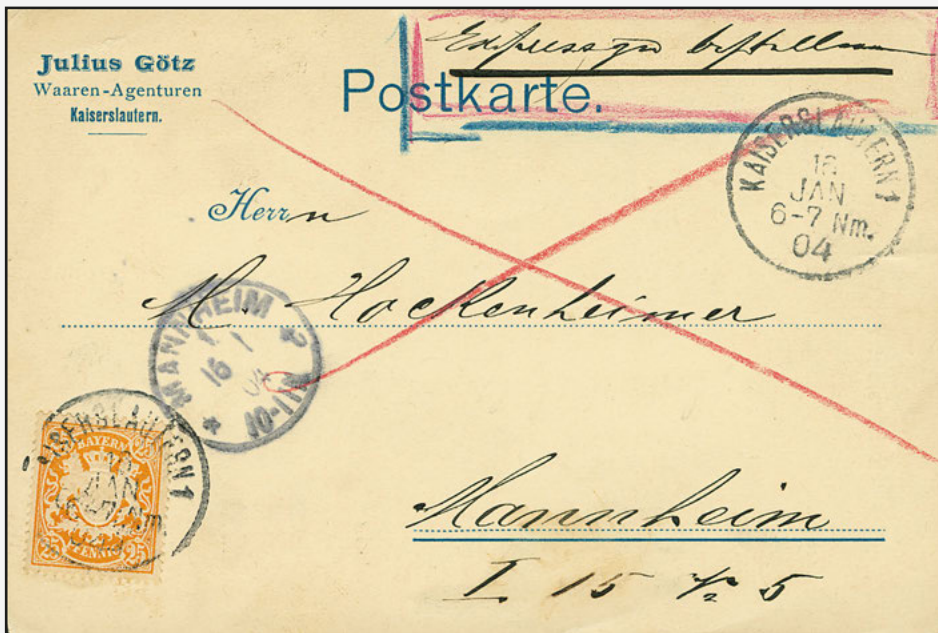 Julius Götz
Waaren-Agenturen
Kaiserslautern.
Express zu bestellen
Postkarte.
KAISERSLAUTERN 1
JAN
6-7 Nm.
04
Herrn
M. Hockenheimer
MANNHEIM 2
16 1
04
10-11V
KAISERSLAUTERN 1
JAN
6-7 Nm.
BAYERN
25 PFENNIG 25
Mannheim
I. 15 No 5